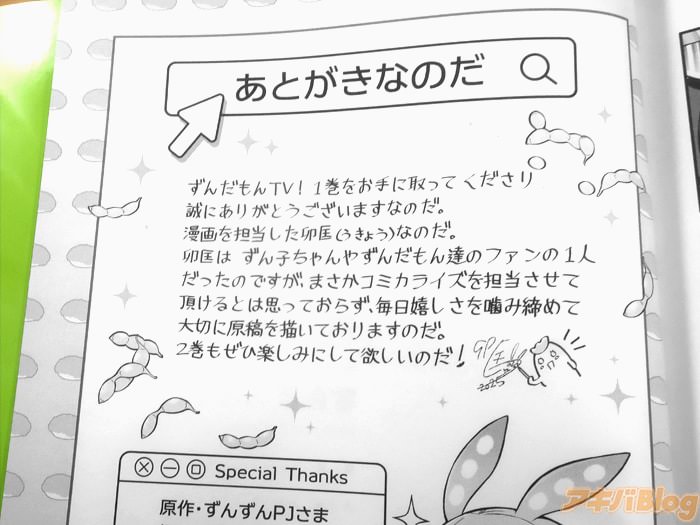 あとがきなのだ
ずんだもんTV！1巻をお手に取ってくださり
誠にありがとうございますなのだ。
漫画を担当した卯匡(うきょう)なのだ。
卯匡は ずん子ちゃんやずんだもん達のファンの1人
だったのですが、まさかコミカライズを担当させて
頂けるとは思っておらず、毎日嬉しさを噛み締めて
大切に原稿を描いておりますのだ。
2巻もぜひ楽しみにして欲しいのだ！
卯匡
2025
Special Thanks
原作・ずんずんPJさま
アキバBlog